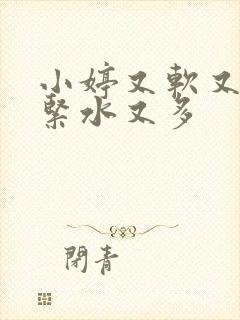 小婷又軟又
緊水又多
閉青